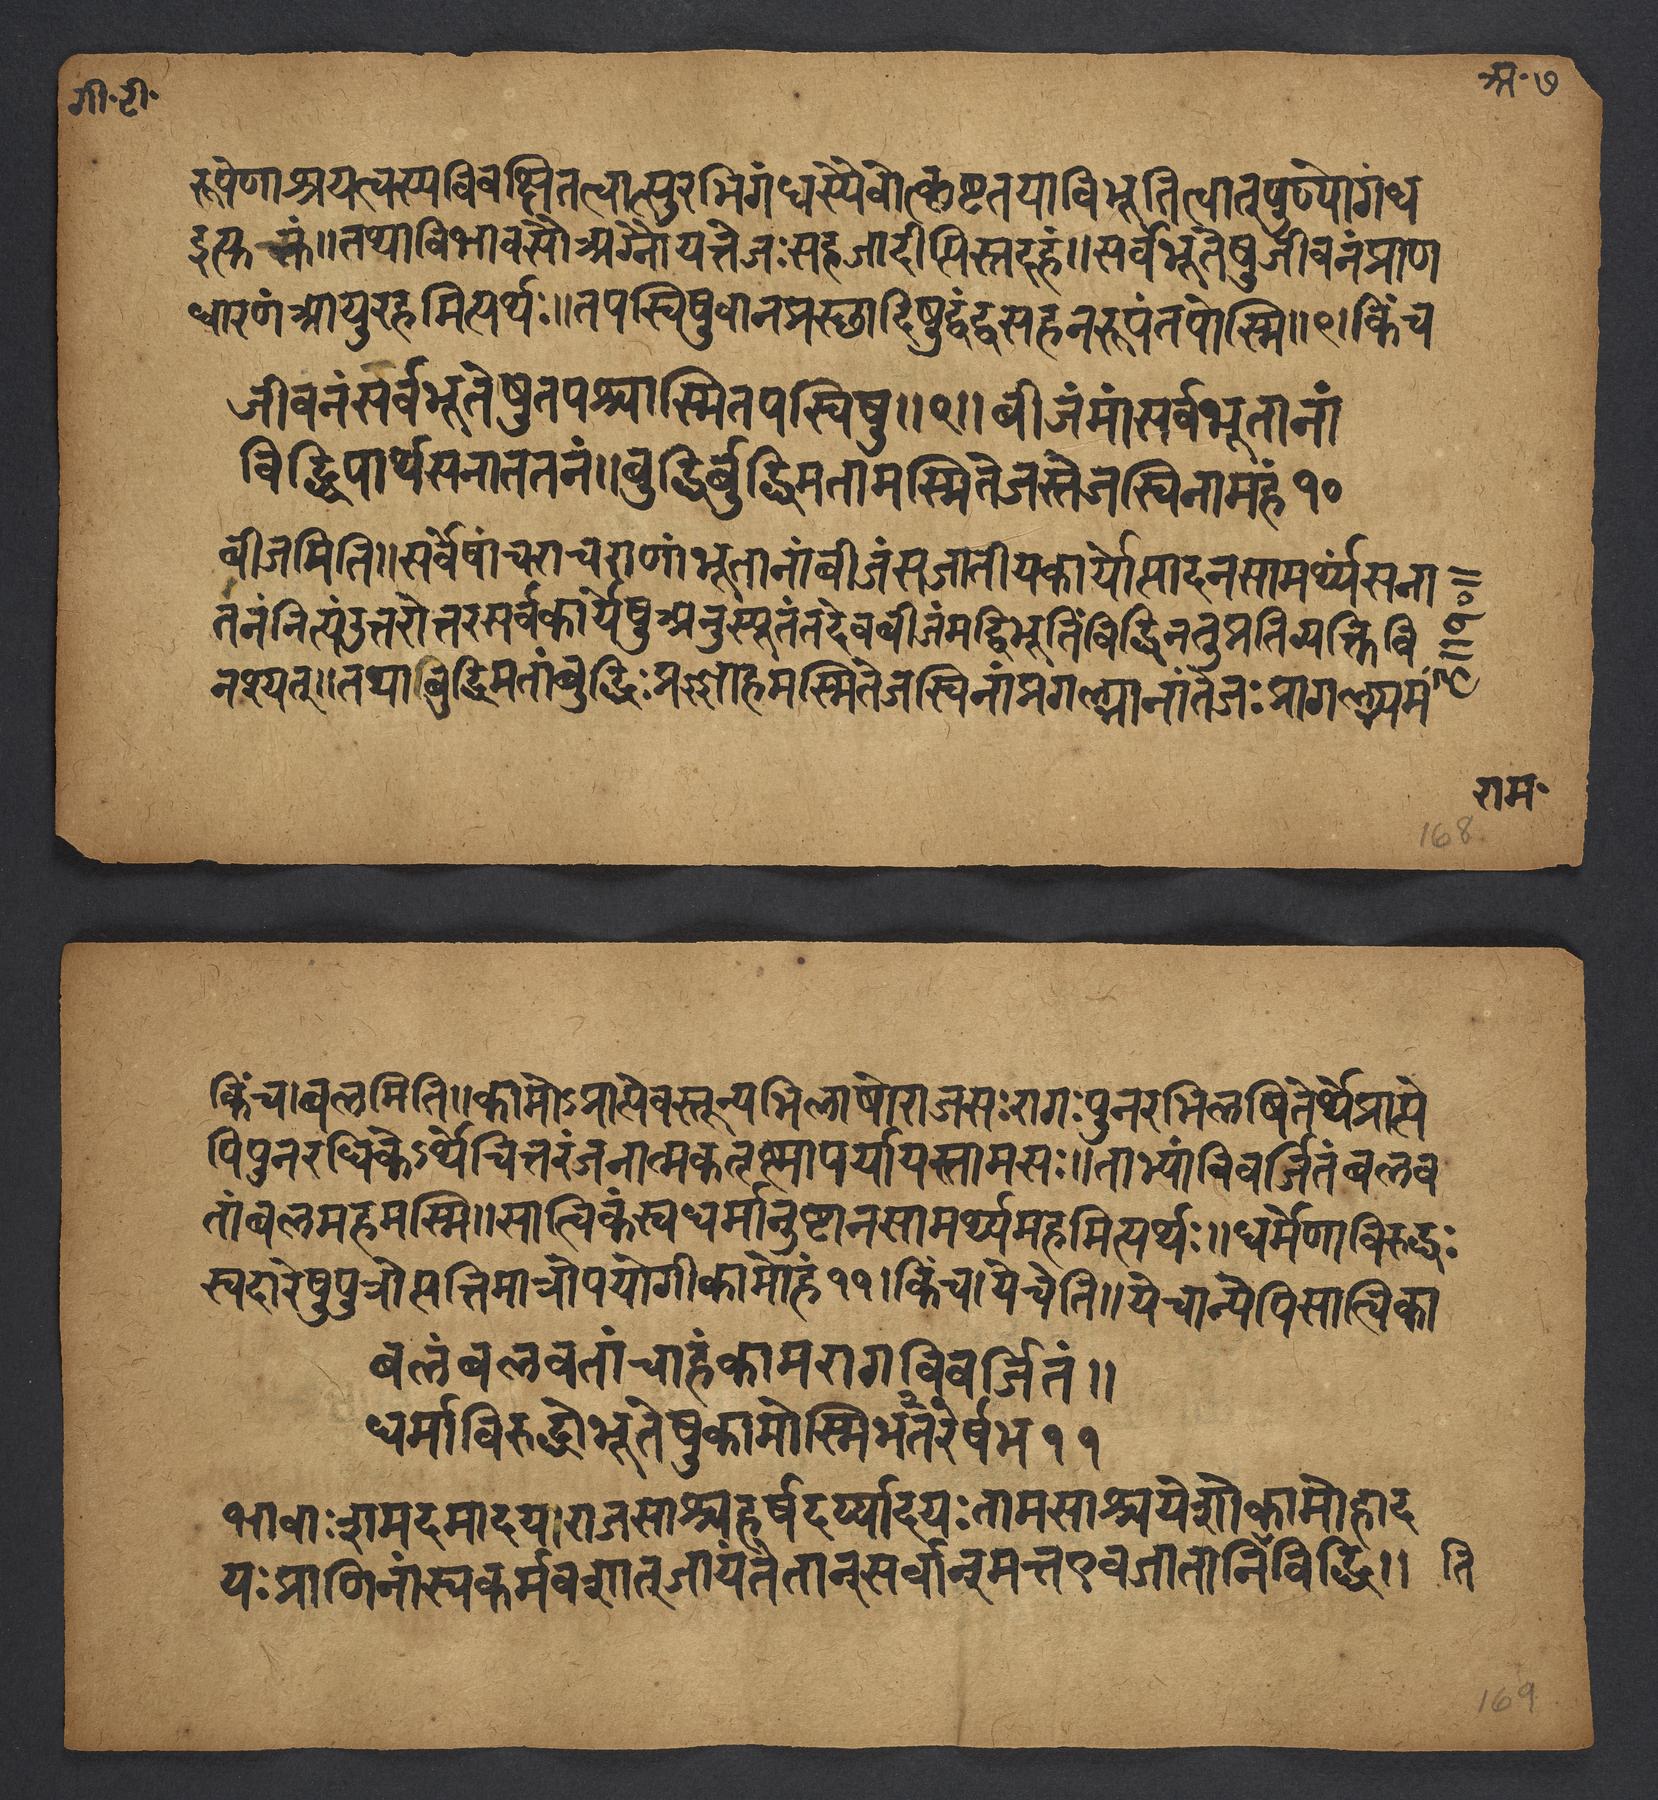 गी॰टी॰
अ॰७
रूपेणाश्रयत्वस्यविवक्षितत्वात्सुरभिगंधस्यैवोत्कृष्टतयाविभूतित्वात्पुण्योगंध
इत्युक्तं॥तथाविभावसौअग्नौयत्तेजःसहजादीप्तिस्तदहं॥सर्वभूतेषुजीवनंप्राण
धारणंआयुरहमित्यर्थः॥तपस्विषुवानप्रस्छादिषुद्वंद्वसहनरूपंतपोस्मि॥९।किंच
जीवनंसर्वभूतेषुतपश्चास्मितपस्विषु॥९॥बीजंमांसर्वभूतानां
विद्धिपार्थसनाततनं॥बुद्धिर्बुद्धिमतामस्मितेजस्तेजस्विनामहं१०
बीजमिति॥सर्वेषांचराचराणांभूतानांबीजंसजातीयकार्योत्पादनसामर्थ्यंसना
तनंनित्यंउत्तरोत्तरसर्वकार्येषुअनुस्यूतंतदेवबीजंमद्विभूतिंविद्धिनतुप्रतिव्यक्तिवि
नश्यत्॥तथाबुद्धिमतांबुद्धिःप्रज्ञाहमस्मितेजस्विनांप्रगल्भानांतेजःप्रागल्भ्यम
हं॥१०॥
राम॰
168
किंच।बलमिति॥कामोऽप्राप्तेवस्तून्यभिलाषोराजसःरागःपुनरभिलषितेर्थेप्राप्ते
पिपुनरधिकेऽर्थेचित्तरंजनात्मकतृष्णापर्यायस्तामसः॥ताभ्यांविवर्जितंबलव
तांबलमहमस्मि॥सात्विकंस्वधर्मानुष्टानसामर्थ्यमहमित्यर्थः॥धर्मेणाविरुद्धः
स्वदारेषुपुत्रोत्पत्तिमात्रोपयोगीकामोहं११।किंच।येचेति॥येचान्येपिसात्विका
बलंबलवतांचाहंकामरागविवर्जितं॥
धर्माविरुद्धोभूतेषुकामोस्मिभतरर्षभ११
भावाःशमदमादय।राजसाश्चहर्षदर्प्पादयःतामसाश्चयेशोकामोहाद
यःप्राणिनांस्वकर्मवशात्जायंतेतान्सर्वान्मत्तएवजातानिविद्धि॥ ति
169